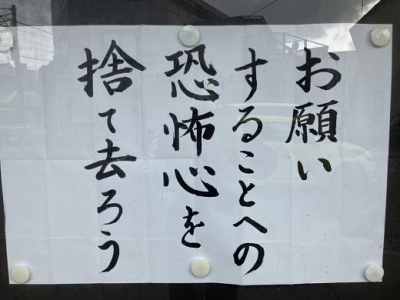 お願い
することへの
恐怖心を
捨て去ろう